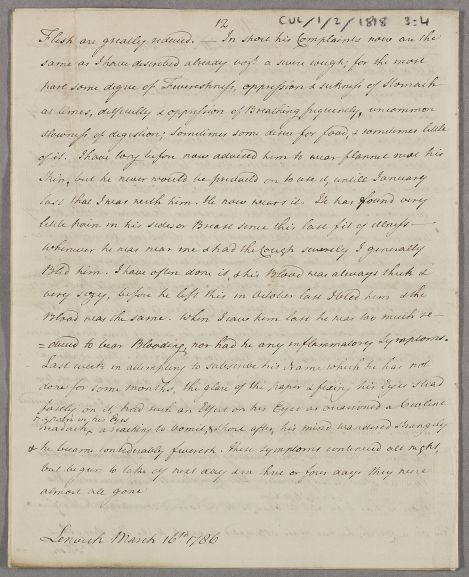 12
CUL/1/2/1818 3:4
Flesh are greatly reduced. — In short his Complaints now are the
same as I have described already vizt a severe cough; for the most
part some degree of Feverishness, oppression & sickness of Stomach
at times, difficulty & oppression of Breathing frequently, uncommon
slowness of digestion; Sometimes some desire for food, & sometimes little
of it. I have long before now advised him to wear flannel next his
Skin, but he never would be prevailed on to use it, untill January
last that I was with him. He now wears it. He has found very
little pain in his sides or Breast since this last fit of illness —
Whenever he was near me & had the Cough severely I generally
Bled him. I have often done it, & his Blood was always thick &
very sizy, before he left this in October last I bled him & the
Blood was the same. When I saw him last he was too much re-
=duced to bear Blooding, nor had he any inflammatory Symptoms.
Last week in attempting to subscribe his Name which he has not
done for some months, the glare of the paper & fixing his Eyes stead
fastly on it, had such an Effect on his Eyes as occasioned a
& pain in his Eyes
headach, a reaching to vomit, & short after, his mind wandered strangely
& he became considerably feverish. These symptoms continued all night,
but begun to take of next day & in three or four days they were
almost all gone
March 16th 1786